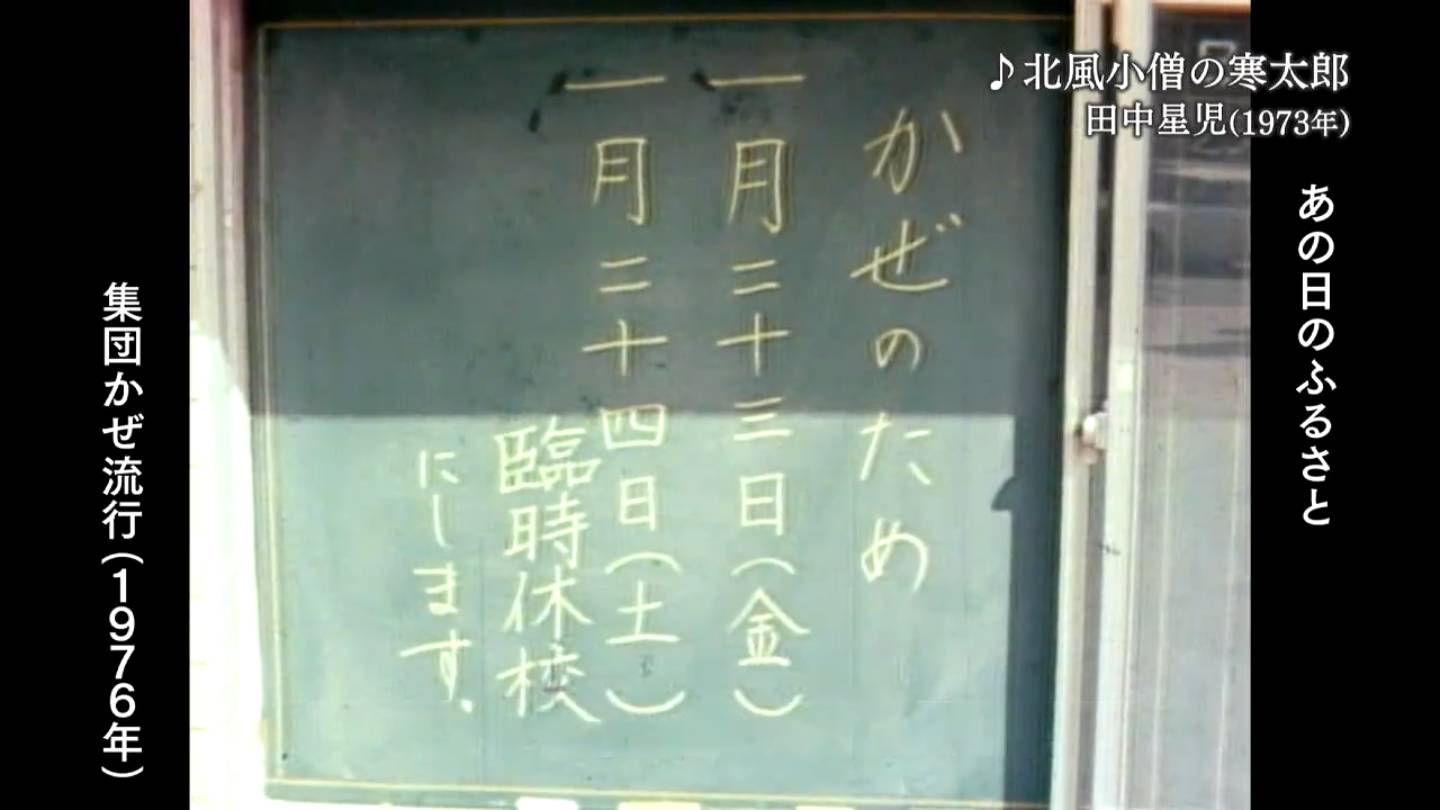 ♪北風小僧の寒太郎
田中星児(1973年)
あの日のふるさと
かぜのため
一月二十三日(金)
一月二十四日(土)
臨時休校
にします.
集団かぜ流行(1976年)